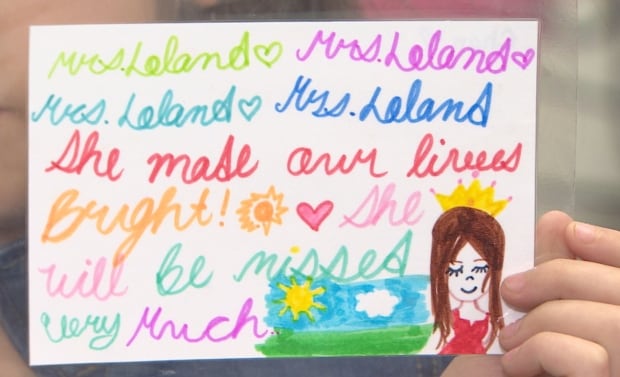 Mrs. Leland♡ Mrs. Leland♡
Mrs. Leland♡ Mrs. Leland
She made owr livees
Bright! She
will be missed
very Much.